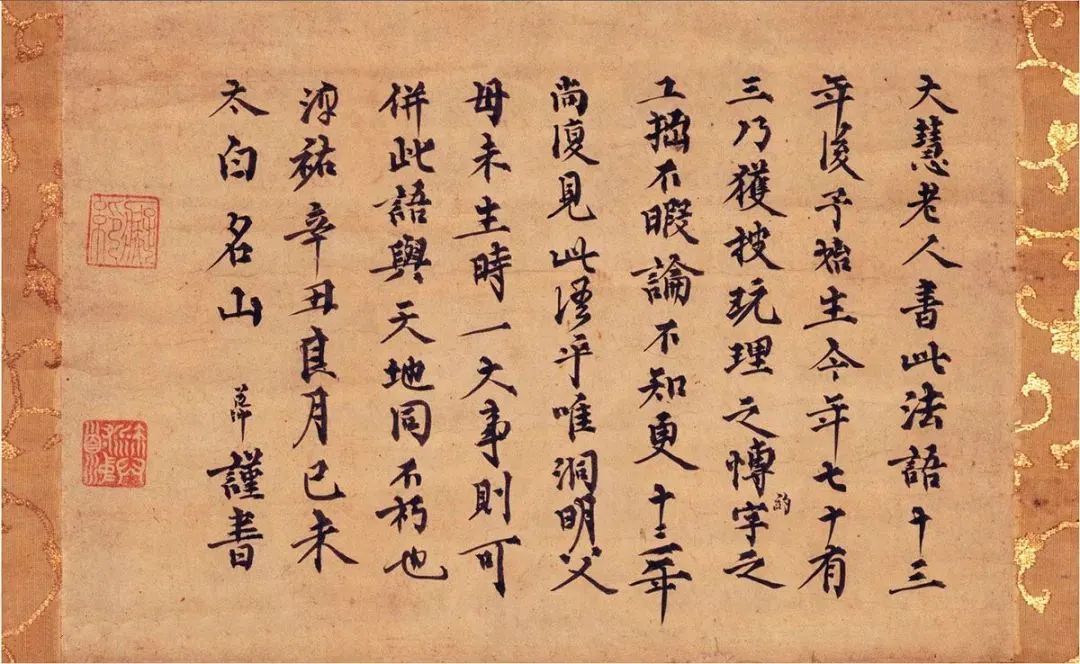 大慧老人書此法語十三
年後予始生今年七十有
三乃獲披玩理之愽的字之
工拙不暇論不知更十三年
尚復見此語乎唯洞明父
母未生時一大事則可
併此語與天地同不朽也
淳祐辛丑良月已未
太白名山 道冲 謹書